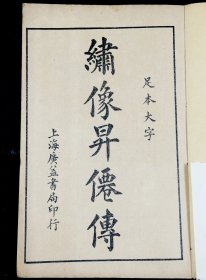 足本大字
繡像昇僊傳
上海廣益書局印行